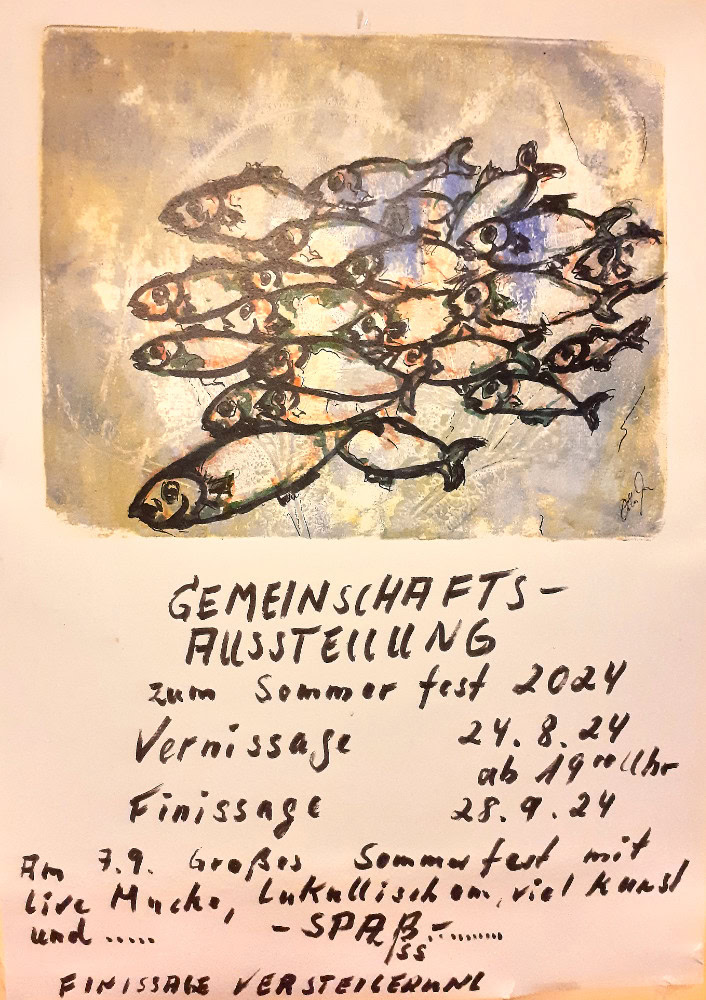 GEMEINSCHAFTS-
AUSSTELLUNG
zum Sommerfest 2024
Vernissage 24.8.24
ab 19 00 Uhr
Finissage 28.9.24
Am 7.9. Großes Sommerfest mit
live Mucke, Lukullischem, viel Kunst
und ..... - SPAß - ........
ss
FINISSAGE VERSTEIGERUNG